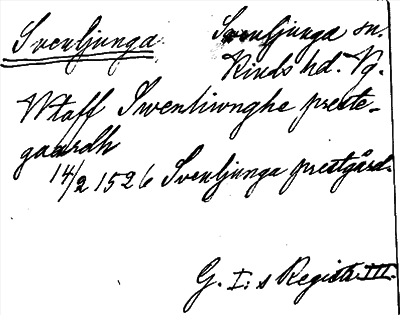 Svenljunga Svenljunga sn.
Kinds hd. Vg.
Wtaff Swenliwnghe preste-
gaardh
14/2 1526 Svenljunga prestgård.
G. I:s Registr. III.